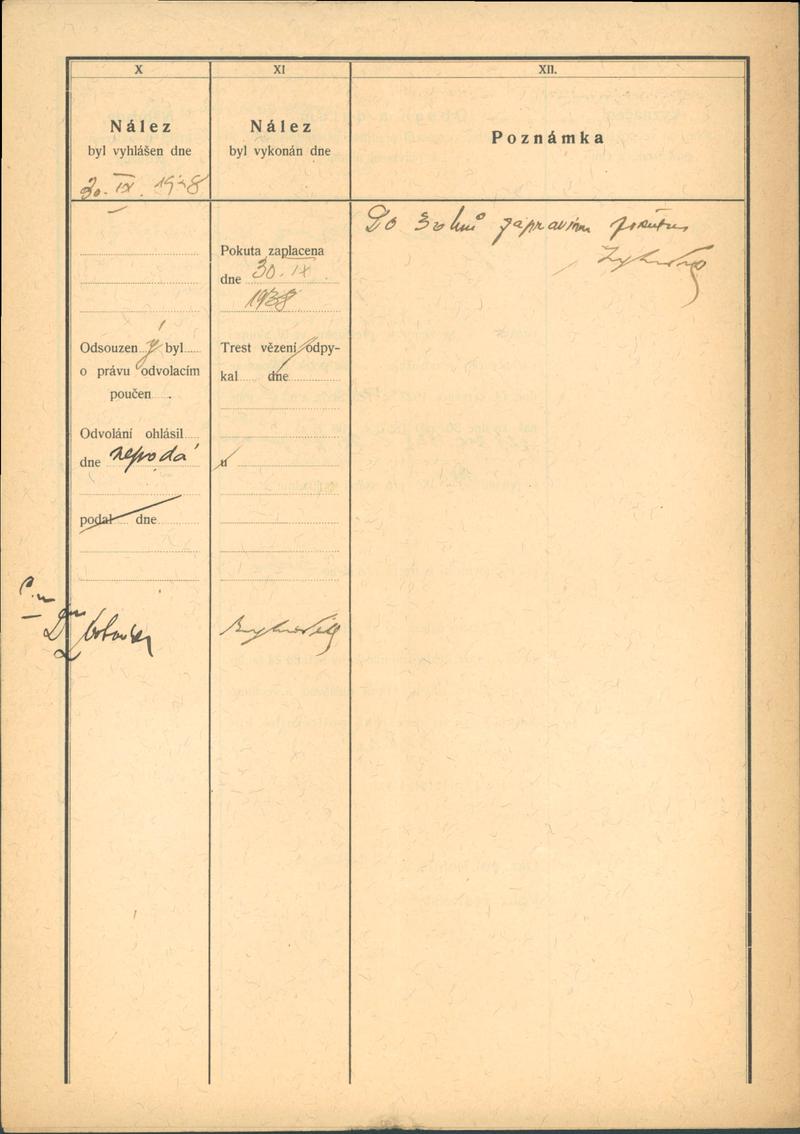 X
Nález
byl vyhlášen dne
30. IX. 1938
Odsouzen ý byl
o právu odvolacím
poučen .
Odvolání ohlásil
dne nepodá
podal dne
XI
Nález
byl vykonán dne
Pokuta zaplacena
dne 30. IX.
1938
Trest vězení odpy-
kal dne
u
XII.
Poznámka
Do 3 dnů zapravím pokutu